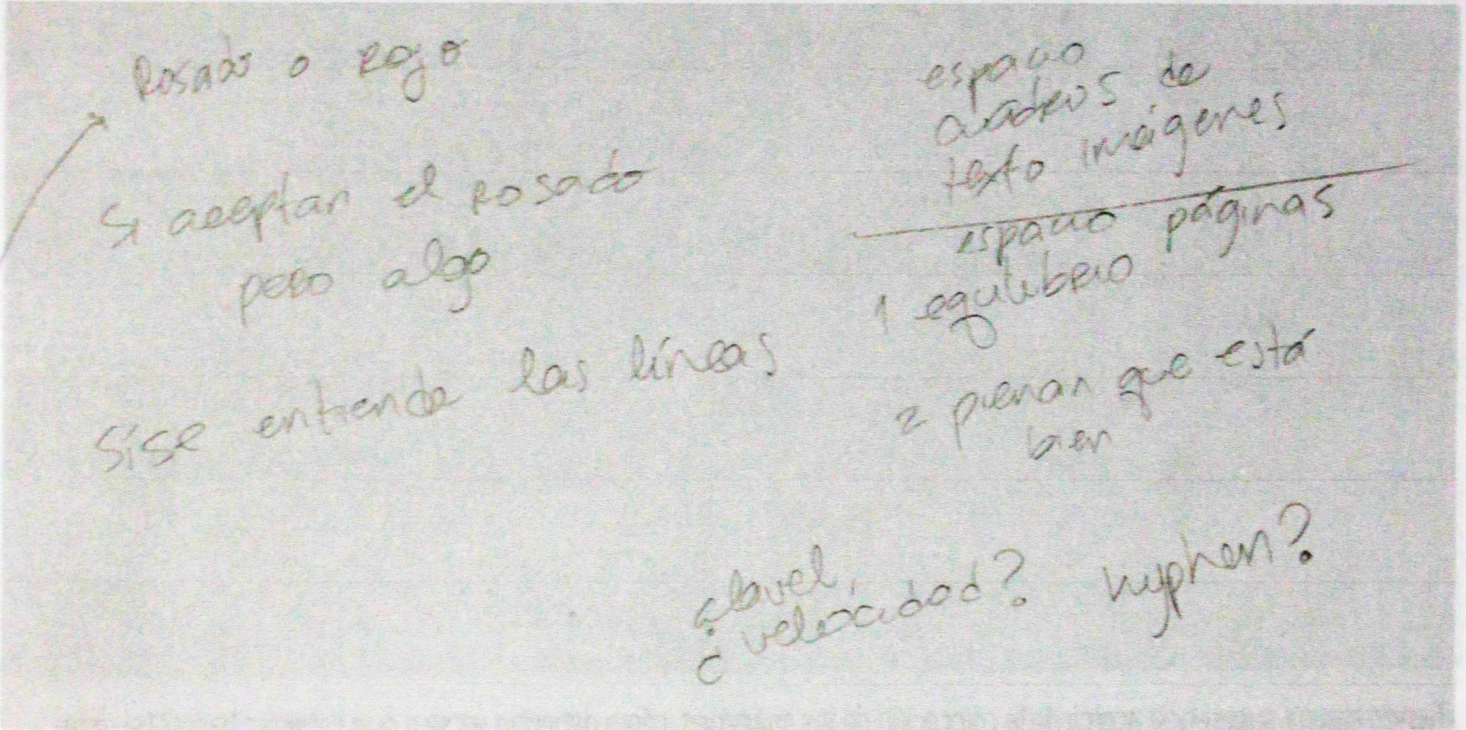 Rosado o Rojo
Si aceptan el Rosado
pero algo
Si se entiende las líneas
espacio
cuadros de
texto imágenes
espacio páginas
1 equilibrio
2 piensan que está
bien
clavel,
¿velocidad? hyphen?